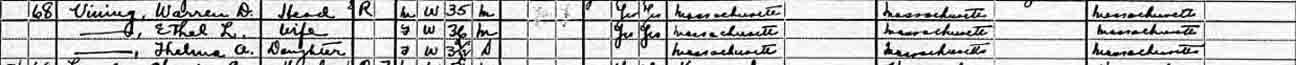 68 Vining, Warren D. Head R m W 35 m Yes Yes Massachusetts Massachusetts Massachusetts
——, Ethel L. Wife F W 36 m Yes Yes Massachusetts Massachusetts Massachusetts
——, Thelma A. Daughter F W S Massachusetts Massachusetts Massachusetts